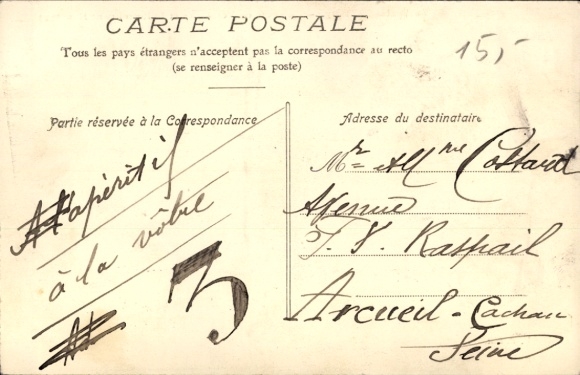 CARTE POSTALE
Tous les pays étrangers n'acceptent pas la correspondance au recto
(se renseigner à la poste)
15,-
Partie réservée à la Correspondance
apéritif
à la vôtre
3
Adresse du destinataire
Mr et Mme Cottard
Avenue
F. V. Raspail
Arcueil - Cachan
Seine